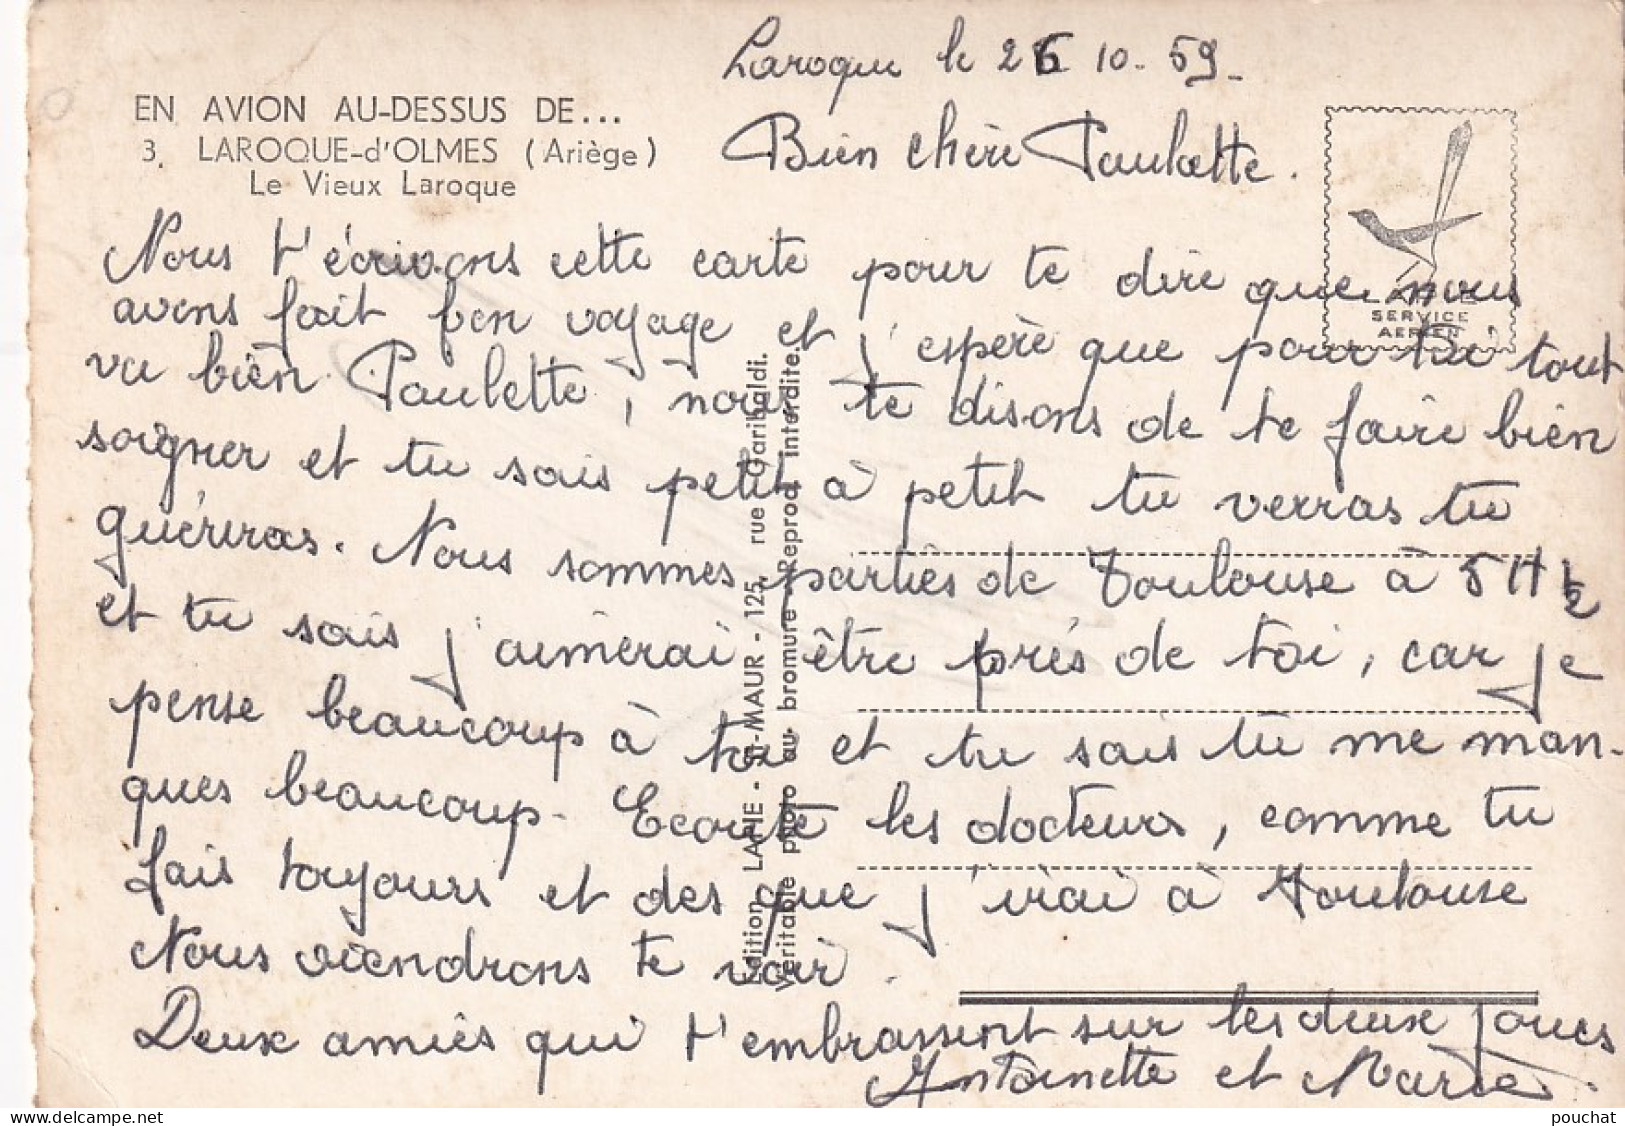 EN AVION AU-DESSUS DE...
3. LAROQUE-d'OLMES (Ariège)
Le Vieux Laroque
Laroque le 26 10. 59.
Bien chère Paulette.
Nous t'écrivons cette carte pour te dire que nous
avons fait bon voyage et j'espère que pour toi tout
va bien Paulette, nous te disons de te faire bien
soigner et tu sais petit à petit tu verras tu
guériras. Nous sommes parties de Toulouse à 5 H ½
et tu sais j'aimerai être près de toi, car je
pense beaucoup à toi et tu sais tu me man-
ques beaucoup. Ecoute les docteurs, comme tu
fais toujours et des que j'irai à Toulouse
Nous viendrons te voir.
Deux amies qui t'embrassent sur les deux joues
Antoinette et Marie.
LAPIE
SERVICE
AERIEN
Edition LAPIE - St-MAUR - 125, rue Garibaldi.
Véritable photo au bromure - Reprod. interdite.
pouchat